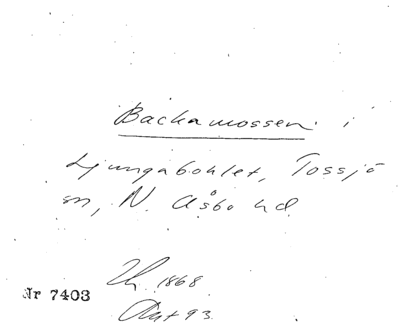 Backamossen i
Ljungabohlet, Tossjö
sn, N. Åsbo hd.
1868
Nr 7403
93.